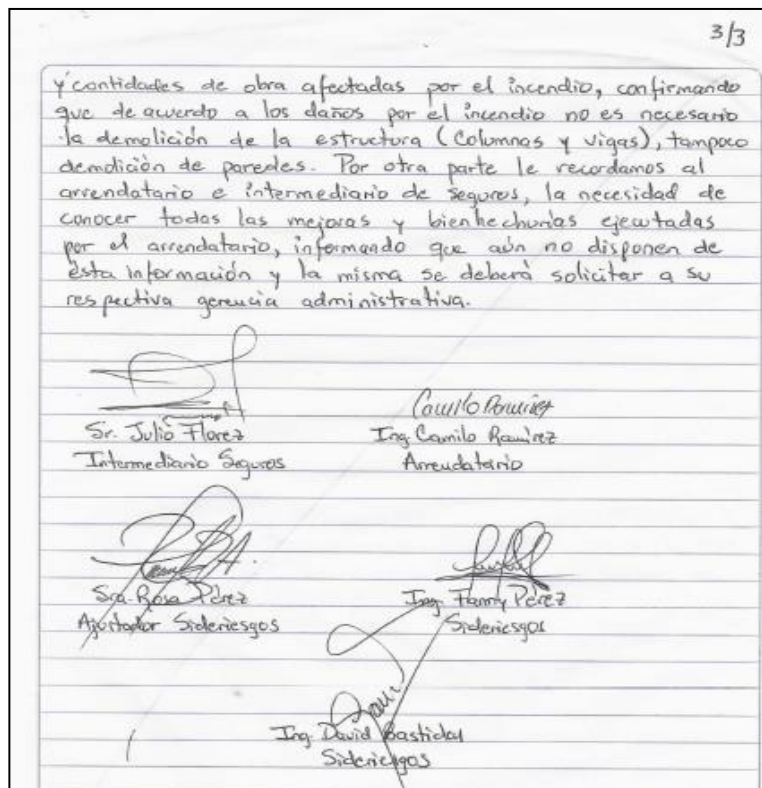 3/3
y cantidades de obra afectadas por el incendio, confirmando
que de acuerdo a los daños por el incendio no es necesario
la demolición de la estructura (Columnas y vigas), tampoco
demolición de paredes. Por otra parte le recordamos al
arrendatario e intermediario de seguros, la necesidad de
conocer todas las mejoras y bienhechurías ejecutadas
por el arrendatario, informando que aún no disponen de
ésta información y la misma se deberá solicitar a su
respectiva gerencia administrativa.
Camilo Ramírez
Sr. Julio Florez
Ing. Camilo Ramírez
Intermediario Seguros
Arrendatario
Sra. Rosa Pérez
Ing. Fanny Pérez
Ajustador Sideriesgos
Sideriesgos
Ing. David Bastidas
Sideriesgos